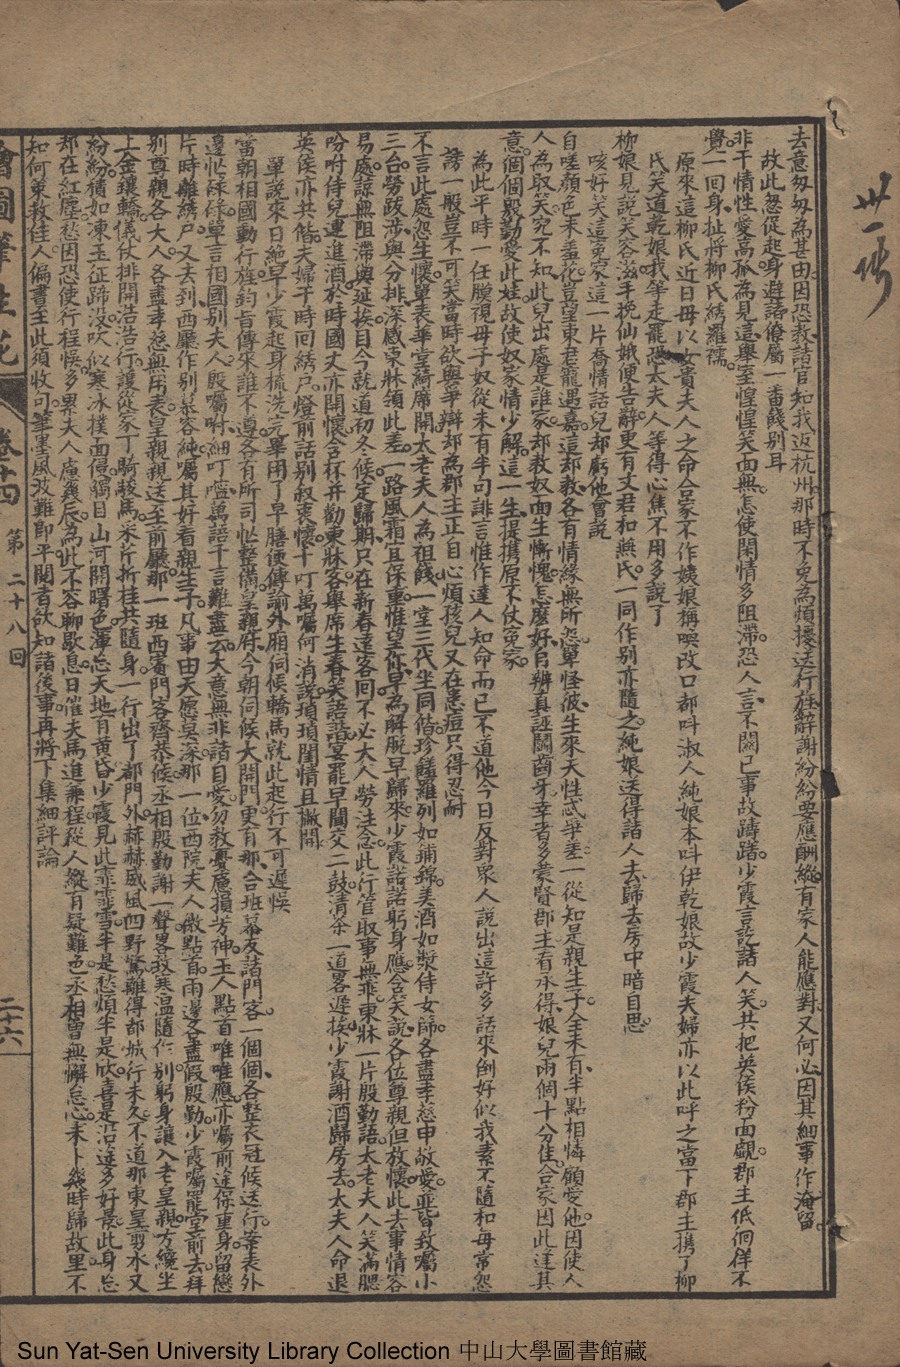 去意匆匆為甚由因恐教諸官知我返杭州那時不免為煩擾送行旌辭謝紛紛要應酬縱有家人能應對又何必因其細事作淹留
故此怱促起身避諸僚屬一番餞別耳
非干情性愛高孤為見這舉至惶惶笑面無怎使閑情多阻滯恐人言不闕已事故躊躇少霞言訖諸人笑共把英侯粉面觀郡主低徊佯不
覺一回身扯將柳氏綉羅襦
原來這柳氏近日毋以女貴夫人之命合家不作姨娘稱喚改口都呌淑人純娘本呌伊乾娘故少霞夫婦亦以此呼之當下郡主携了柳
氏笑道乾娘我等走罷恐太夫人等得心焦不用多說了
柳娘見說天容滋手挽仙娥便告辭更有丈君和燕氏一同作別亦隨之純娘送得諸人去歸去房中暗自思
咳好笑這寃家這一片喬情話兒却虧他會說
自嗟顏色未羞花豈望東君寵遇嘉這却教各有情緣無所怨單怪彼生來天性忒爭差一從知是親生子全未有半點相憐顧愛他因使人
人為取天究不知此兒出處是誰家却教奴面生慚愧怎麼好官辨真誣闢齒牙幸者多蒙賢郡主看承得娘兒兩個十分佳合家因此逢其
意個個殷勤愛此娃故使奴家情少解這一生提携原不仗寃家
為此平時一任膜視母子奴從未有半句誹言惟作達人知命而已不道他今日反對眾人說出這許多話來倒好似我素不隨和毋常怨
謗一般豈不可笑當時欲與爭辯却為郡主正自心煩孩兒又在患痘只得忍耐
不言此處怨生懷單表華堂綺席開太老夫人為祖餞一堂三代坐同偕珍饈羅列如鋪錦美酒如漿侍女篩各盡孝慈申敬愛並皆致囑小
三台勞跋涉與分排深感東牀領此差一路風霜宜保重惟望你早為解脫早歸來少霞諾諾躬身應含笑說各位尊親但放懷此去事情容
易處諒無阻滯與延挨目今就道初冬候定歸期只在新春遠客回不必大人勞注念此行管取事無乖東牀一片殷勤語太老夫人笑滿腮
吩咐侍兒運進酒於時國丈亦開懷含杯并勸東牀客舉席生春笑語諧宴罷早闌交二鼓清茶一道畧遲挨少霞謝酒歸房去太夫人命退
英侯亦共偕夫婦于時回綉戶燈前話別敘衷懷十叮萬囑何消說瑣瑣閨情且撇開
單說來日絶早少霞起身梳洗完畢用了早膳便傳諭外厢伺候轎馬就此起行不可遲悞
當朝相國動行旌鈞旨傳來誰不遵各有所司忙整備皇親府今朝伺候大開門更有那合班幕友諸門客一個個各整衣冠候送行筆表外
邊忙碌碌單言相國別夫人殷囑咐細叮嚀萬語千言難盡云大意無非諸自愛勿教憂慮損芳神玉人點首唯唯應亦囑前途保重身留戀
片時離綉戶又去到西廳作別慕容純囑其好看親生子凡事由天應莫深那一位西院夫人微點首兩邊各盡假殷勤少霞囑罷堂前去拜
別尊親各大人各盡孝慈無用表皇親親送至前廳那一班西賓門客齊恭候丞相殷勤謝一聲畧敘寒温隨作別躬身讓入老皇親方纔坐
上金鑲轎儀仗排開浩浩行護從家丁騎駿馬采芹折桂共隨身一行出了都門外赫赫威風四野驚離得都城行未久不道那東皇剪水又
紛紛積如凍玉征蹄沒吹似寒冰撲面侵觸目山河開曙色渾忘天地有黄昏少霞見此霏霏雪半是愁煩半是欣喜是沿途多好景此身忘
却在紅塵愁因恐使行程悞多累夫人慮幾辰為此不容聊歇息日催夫馬進兼程從人縱有疑難色丞相曾無懈怠心未卜幾時歸故里不
知何策救佳人偏書至此須收句筆墨風波難即平閱者欲知諸後事再將下集細評論
繪圖筆生花 卷十四 第二十八回 二十六
Sun Yat-Sen University Library Collection 中山大學圖書館藏